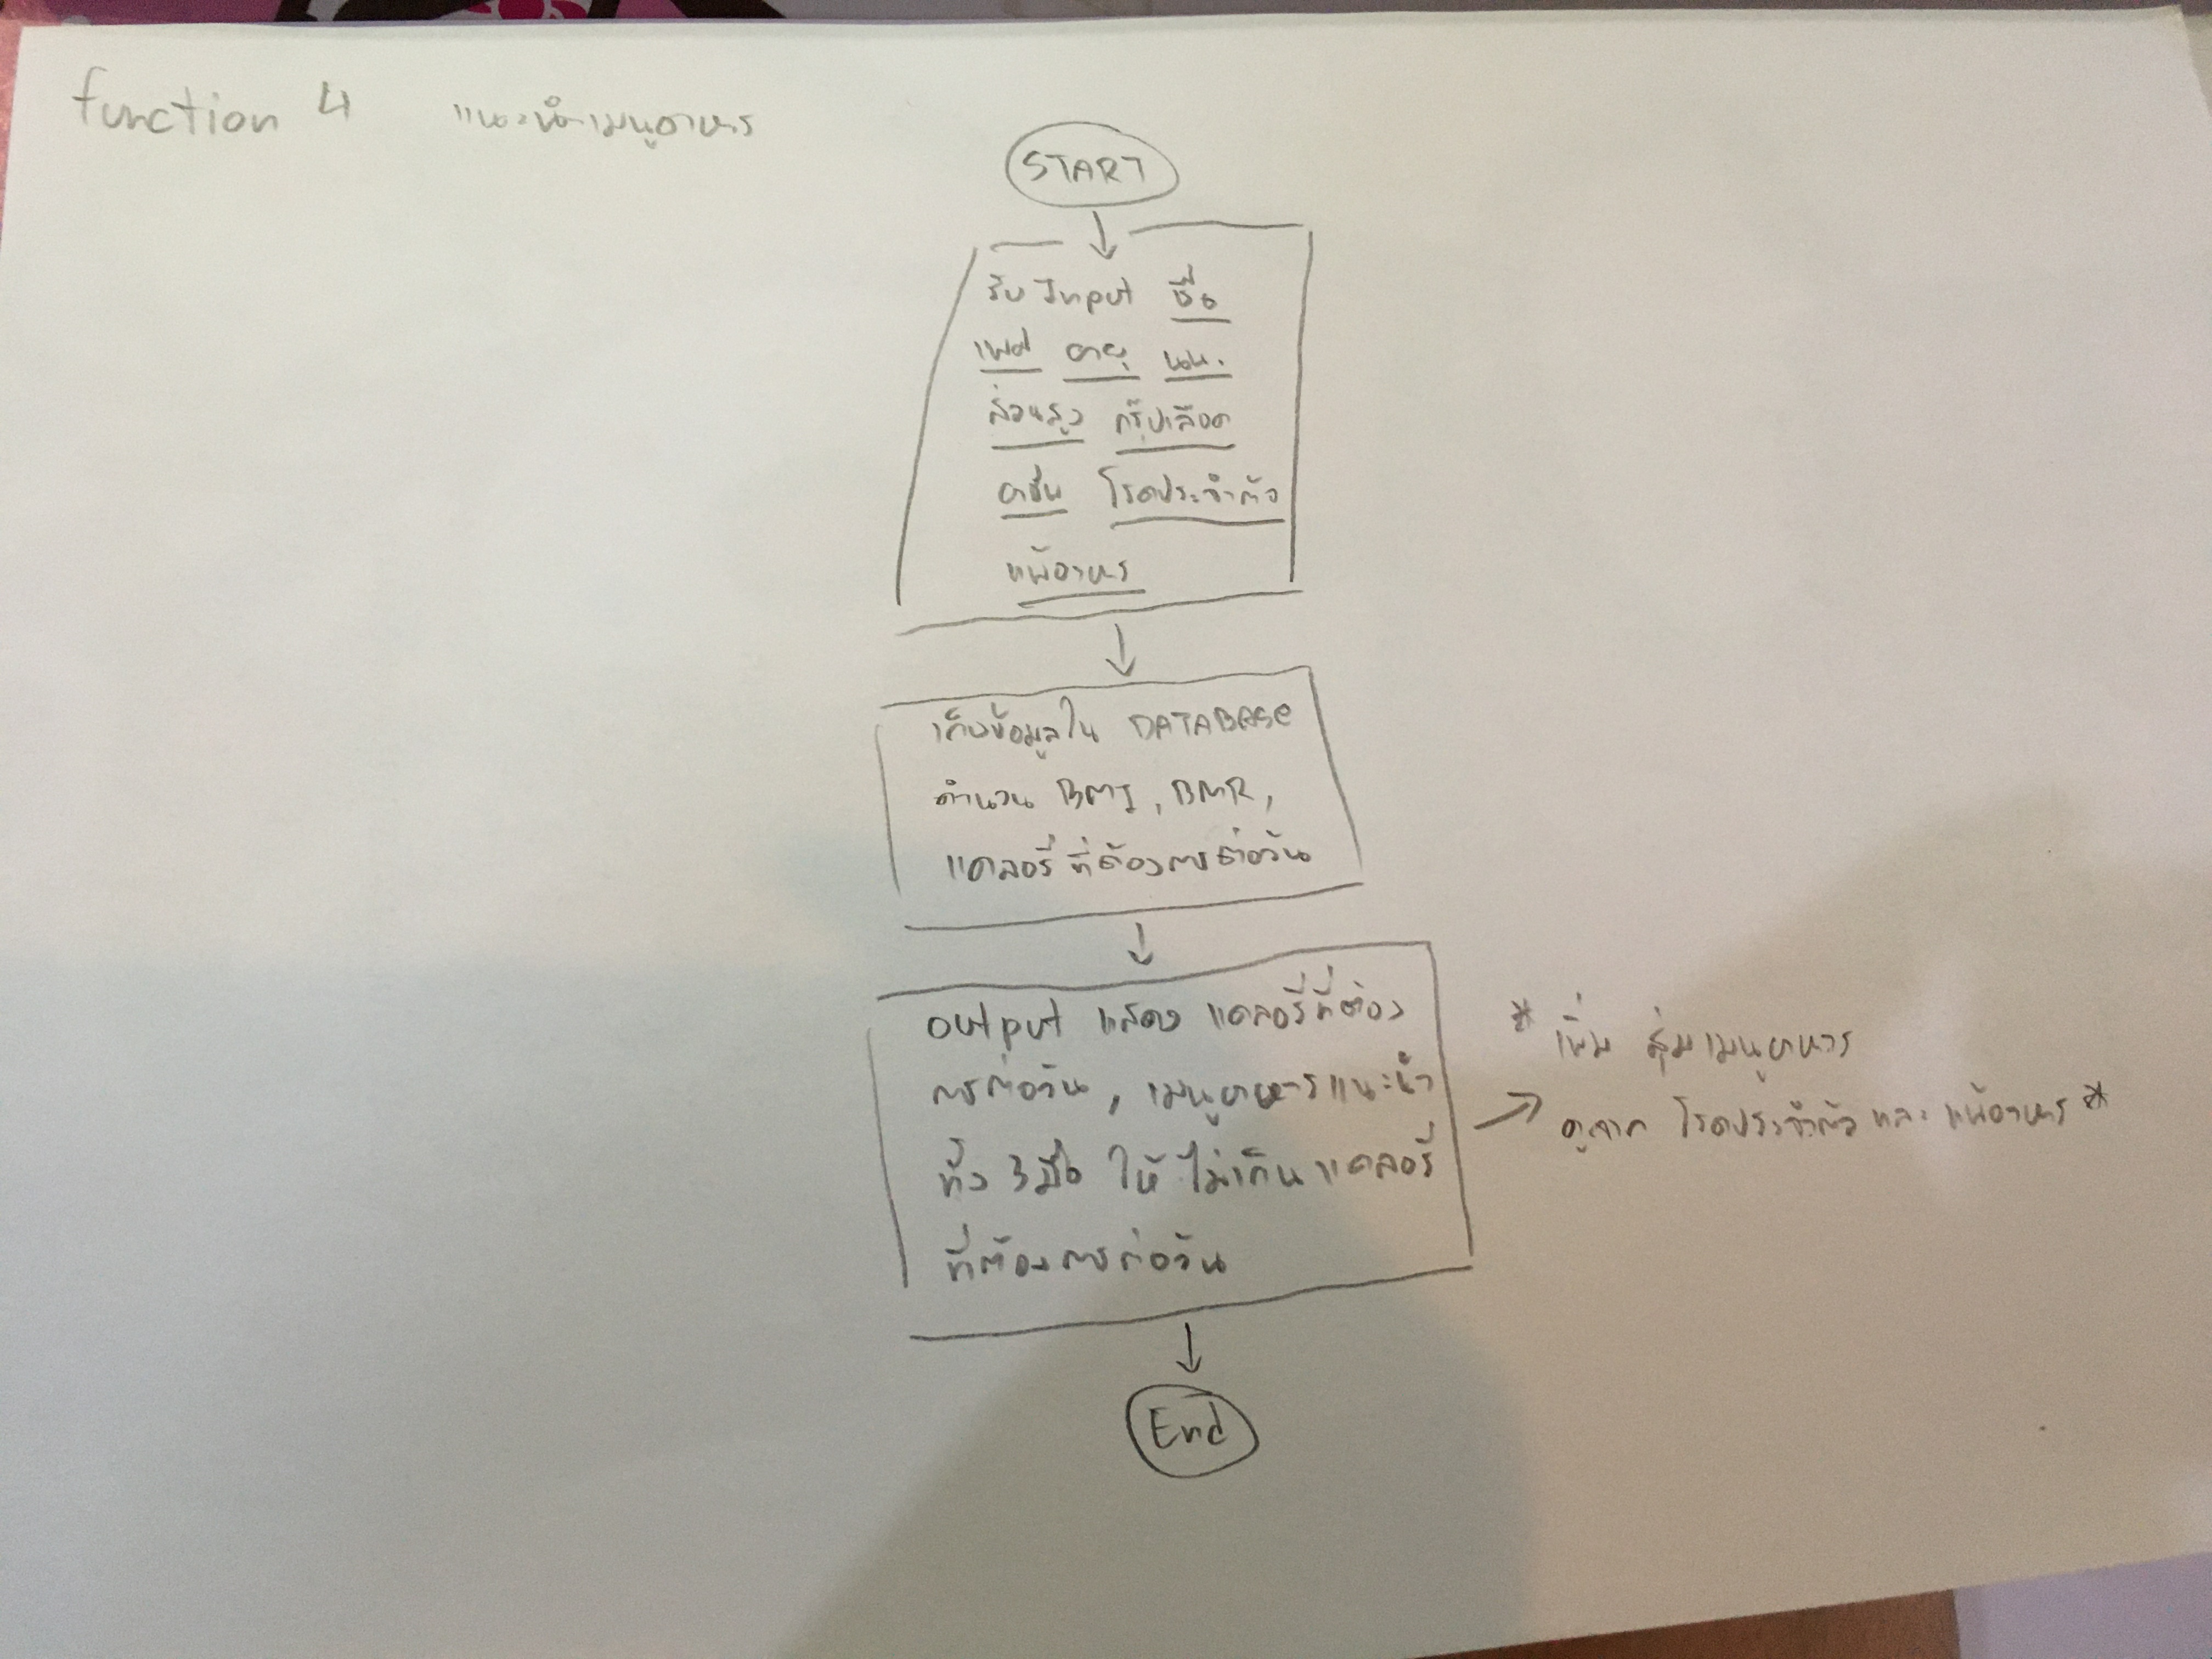 function 4 แนะนำเมนูอาหาร
START
รับ Input ชื่อ
เพศ อายุ นน.
ส่วนสูง กรุ๊ปเลือด
อาชีพ โรคประจำตัว
แพ้อาหาร
เก็บข้อมูลใน DATABASE
คำนวน BMI, BMR,
แคลอรี่ที่ต้องการต่อวัน
output แสดง แคลอรี่ที่ต้อง
การต่อวัน, เมนูอาหารแนะนำ
ทั้ง 3 มื้อ ให้ไม่เกินแคลอรี่
ที่ต้องการต่อวัน
* เพิ่ม สุ่มเมนูอาหาร
ดูจาก โรคประจำตัว และ แพ้อาหาร *
End